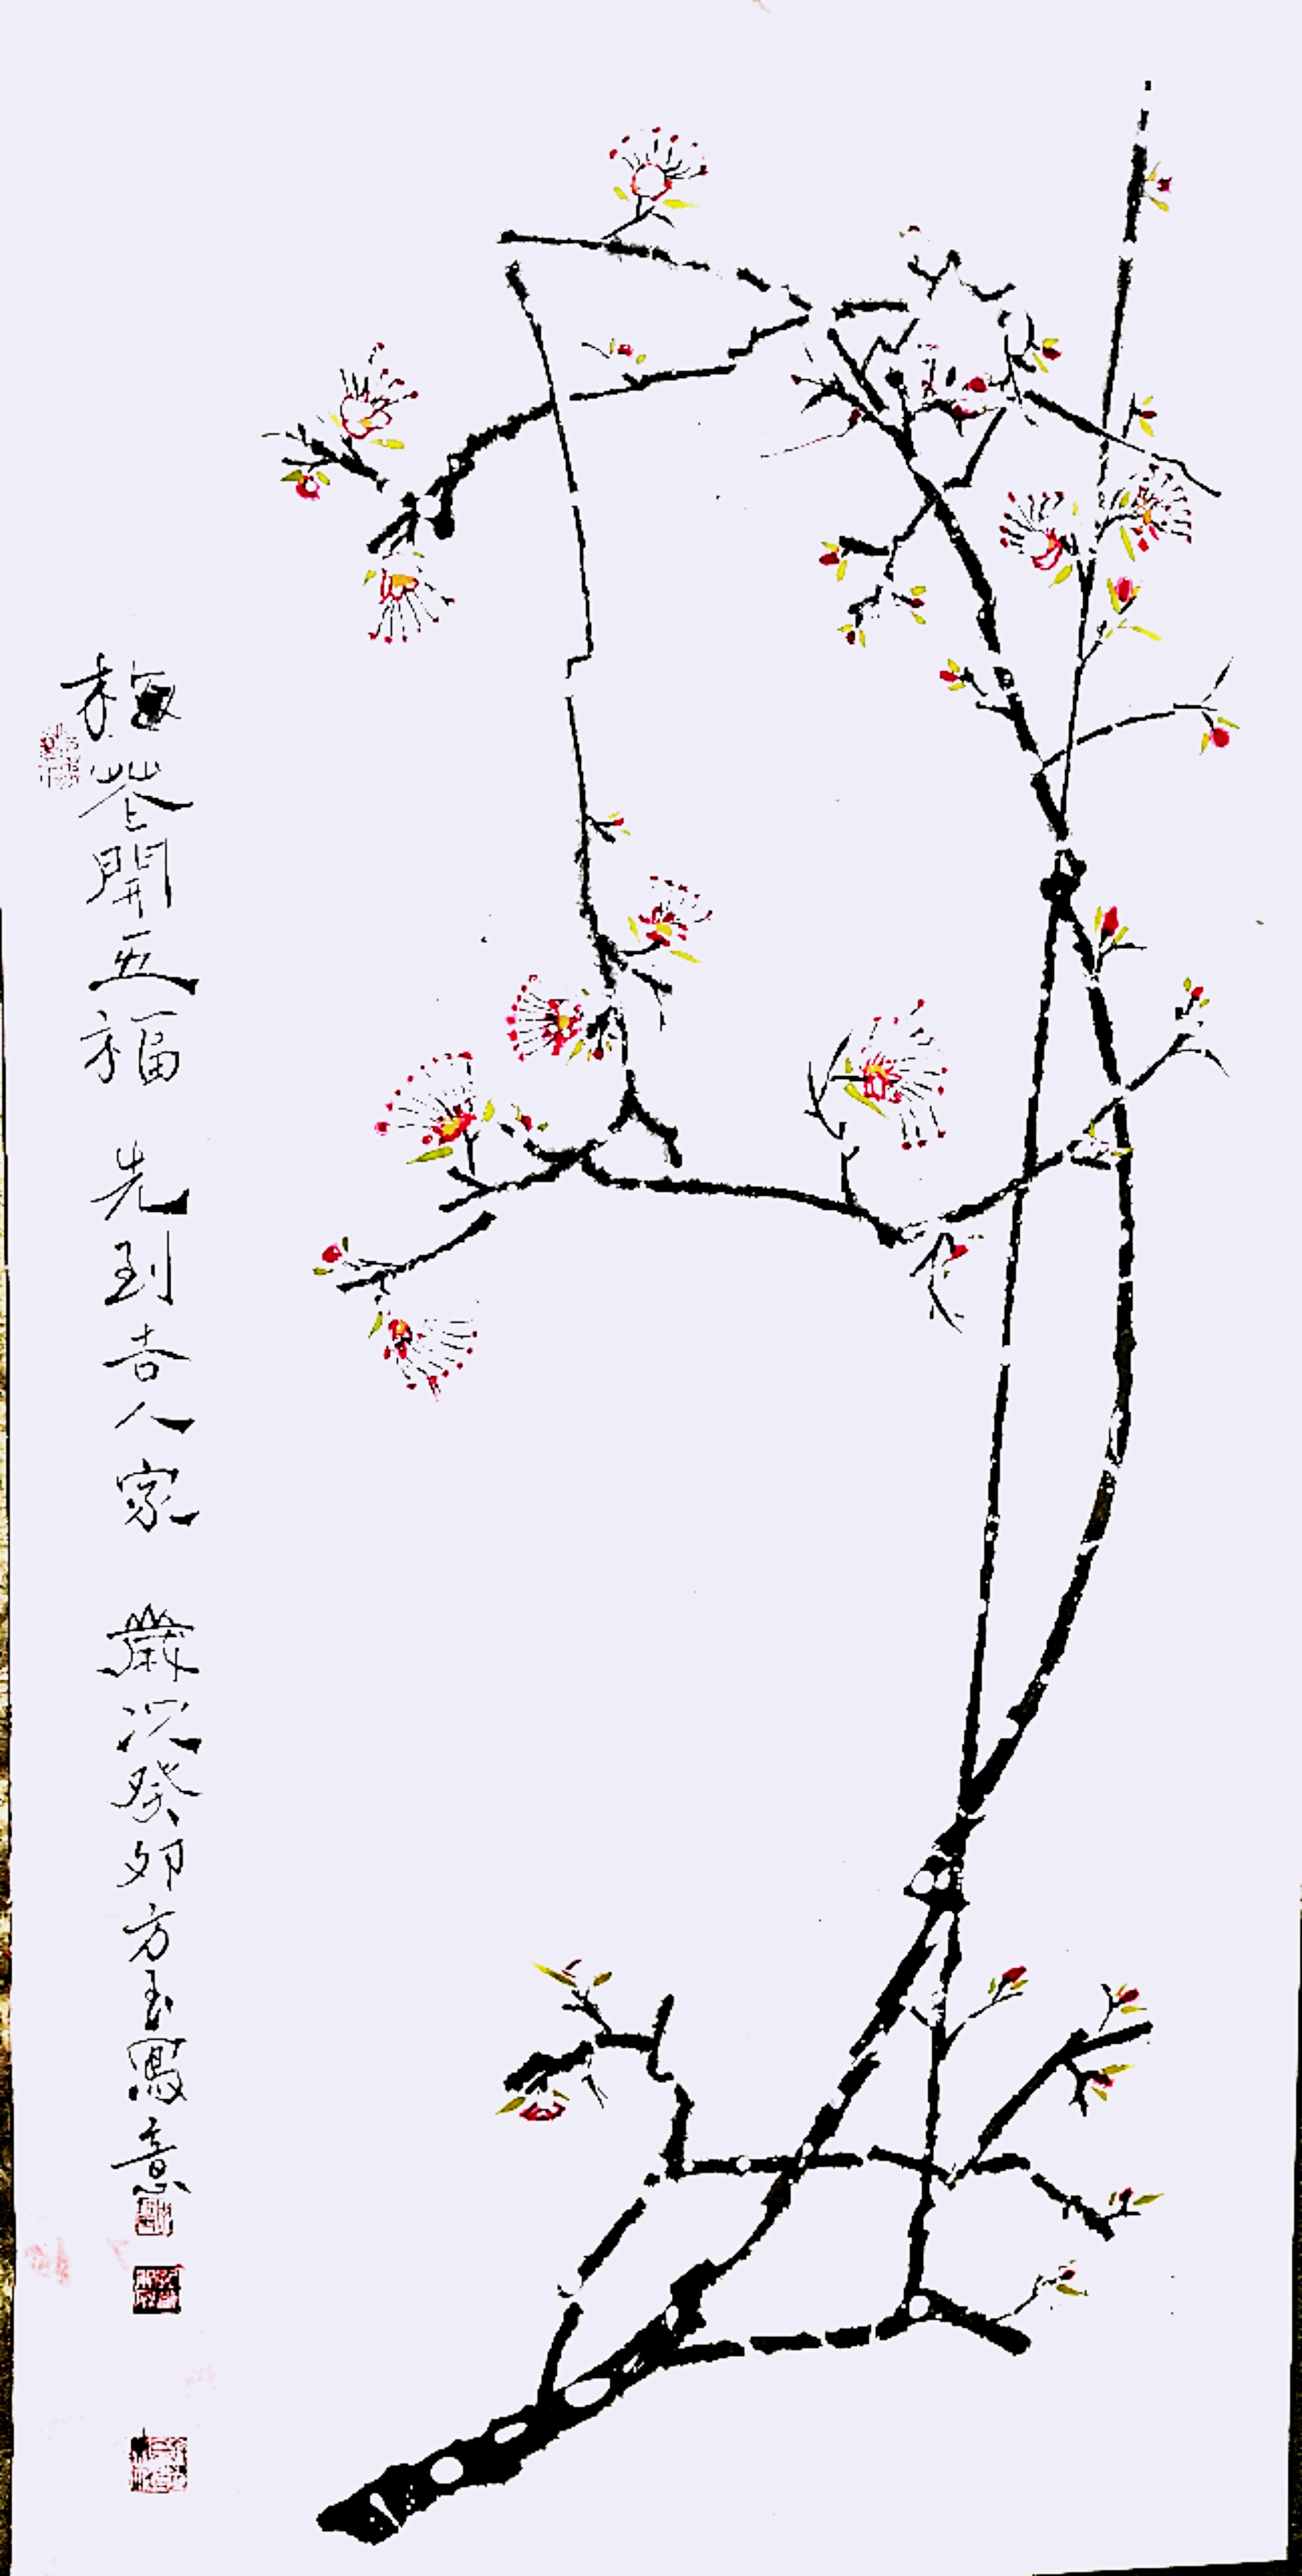 梅花開五福 先到吉人家 歲次癸卯方玉寫意